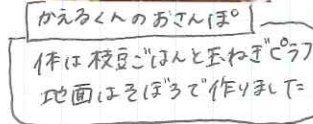 かえるくんのおさんぽ
体は枝豆ごはんと玉ねぎピラフ
地面はそぼろで作りました